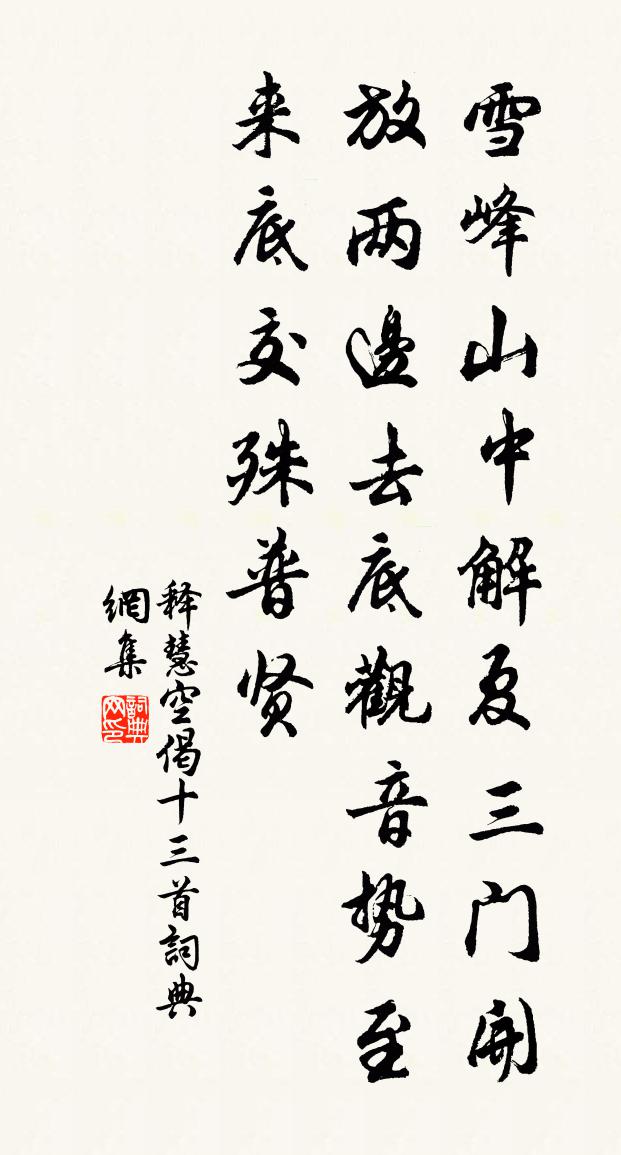 雪峰山中解夏三门開
放两邊去底觀音势至
来底文殊普贤
释慧空偈十三首詞典
網集
詞典
网印